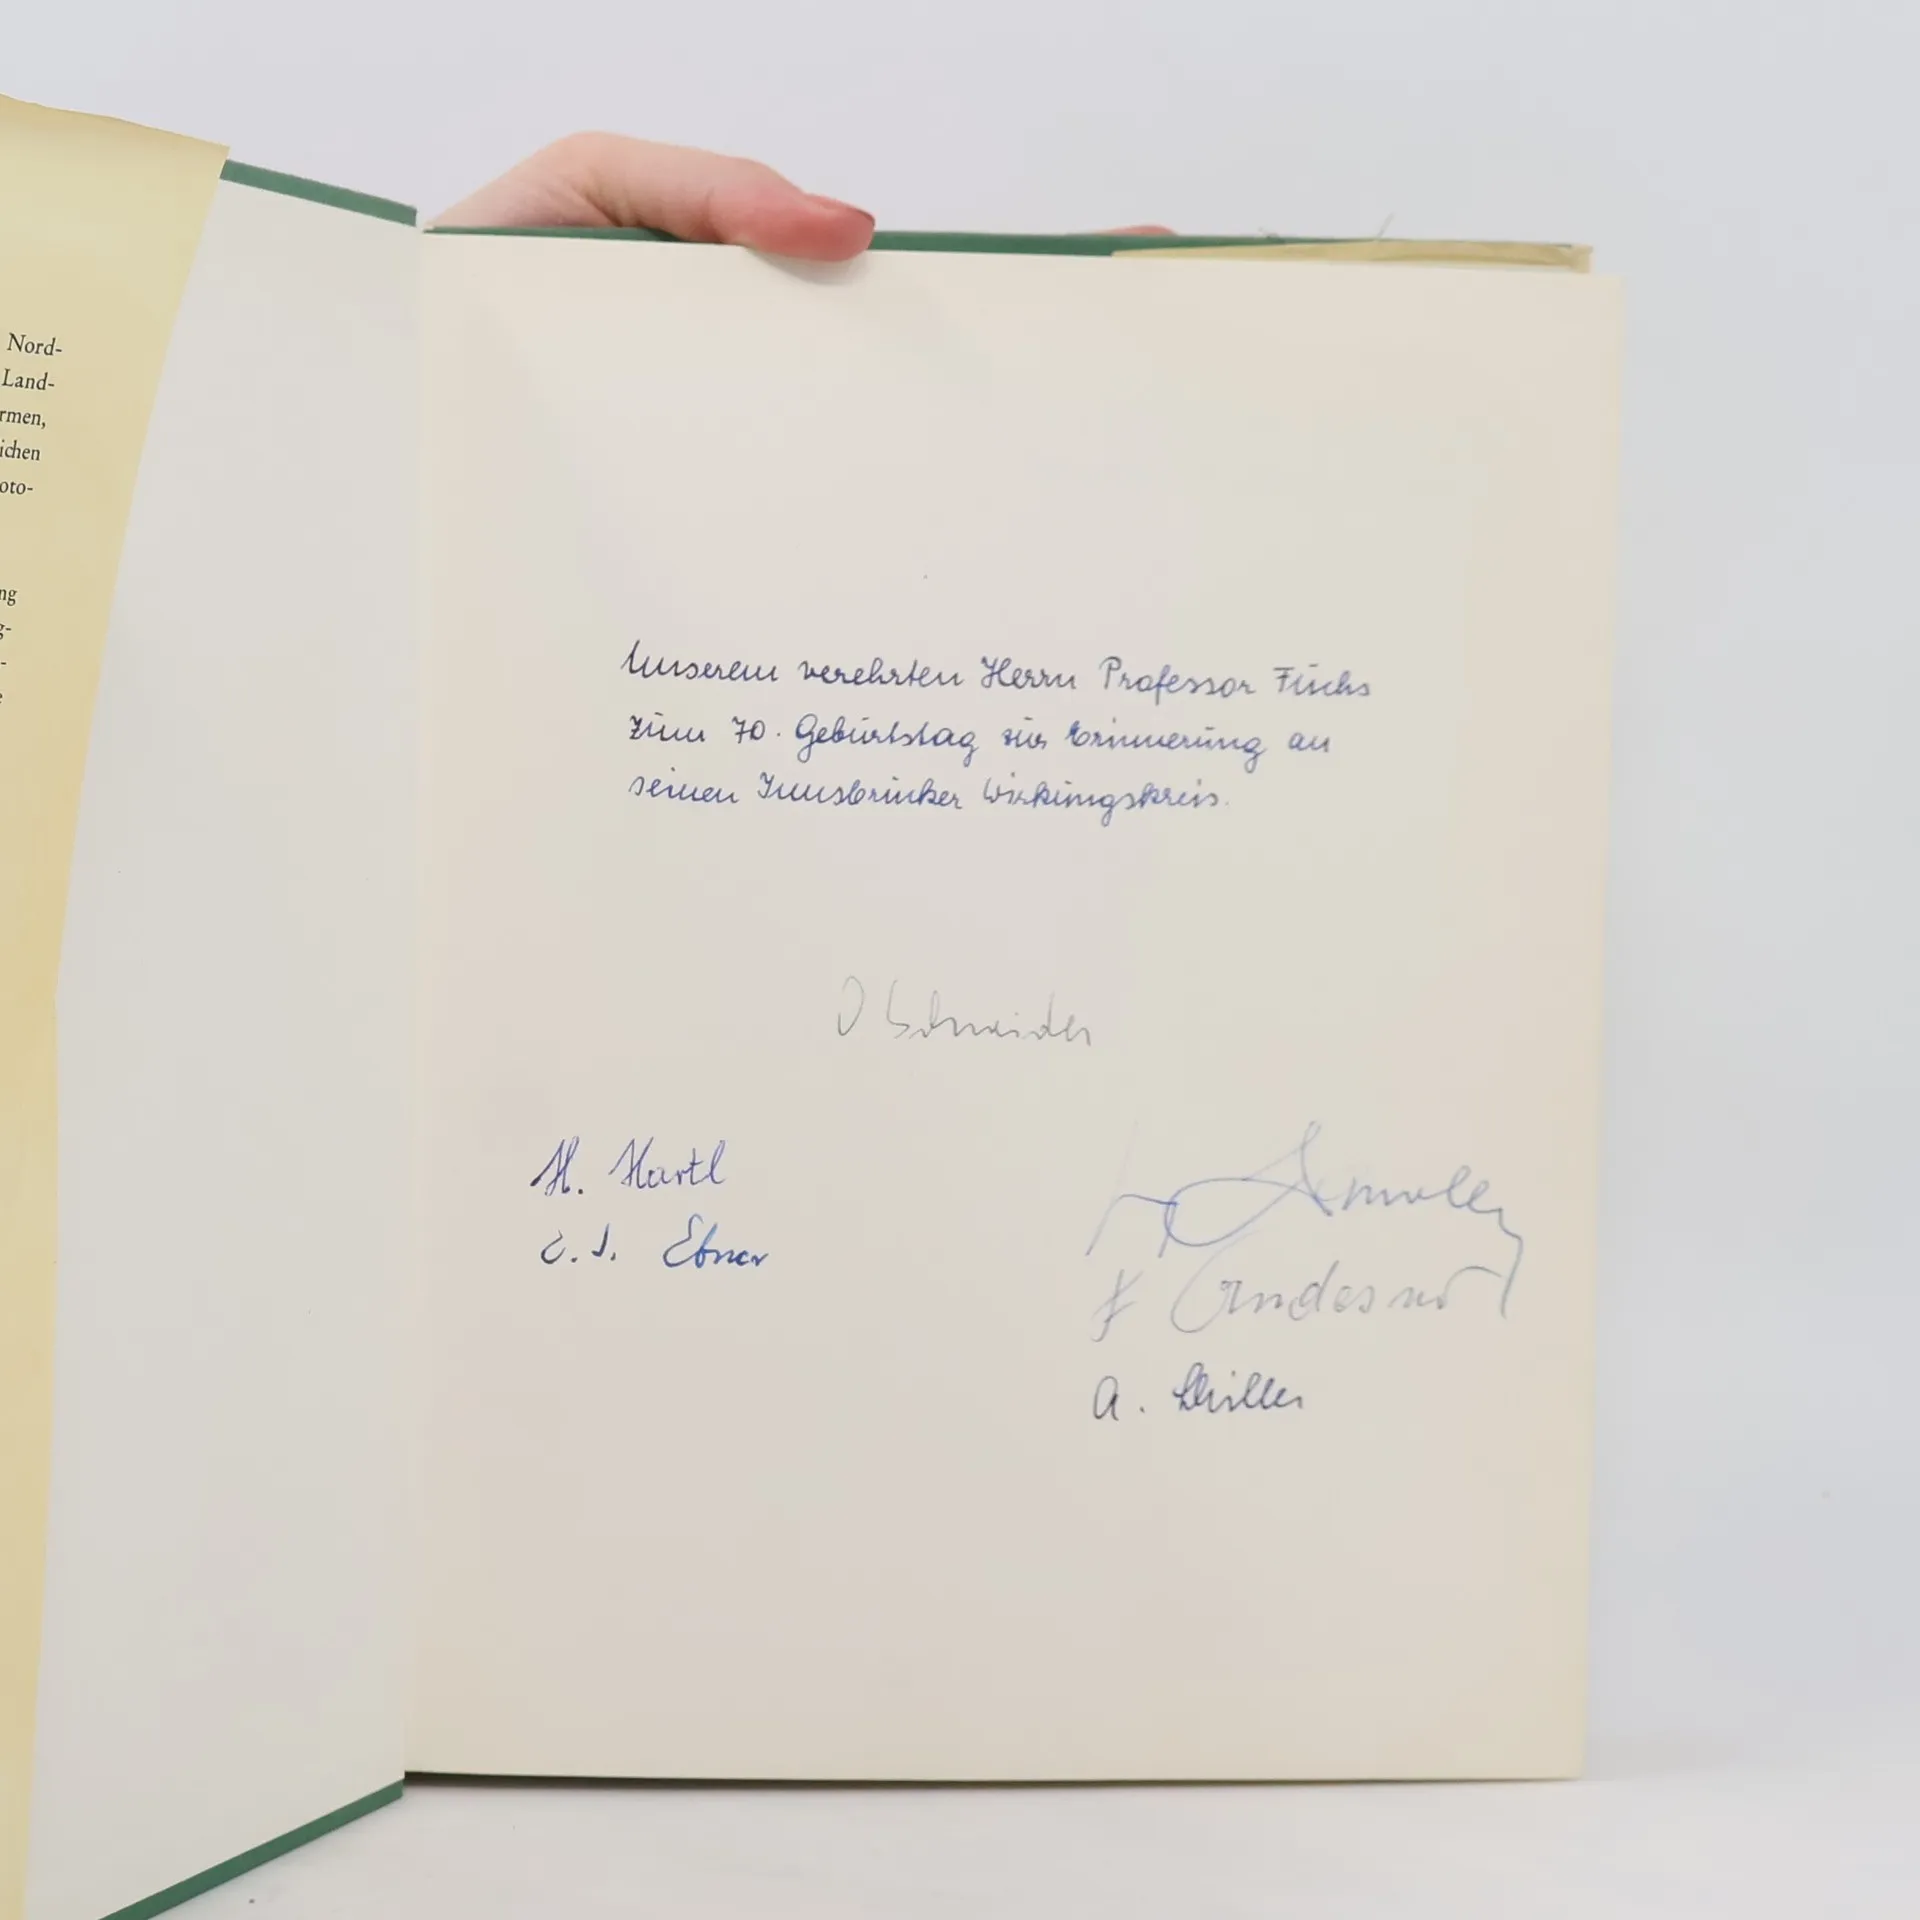 Nord-
Land-
rmen,
ichen
oto-
ng
g-
-
Unserem verehrten Herrn Professor Fuchs
zum 70. Geburtstag zur Erinnerung an
seinen Innsbrucker Wirkungskreis.
Schneider
H. Hartl
E. J. Ebner
A.